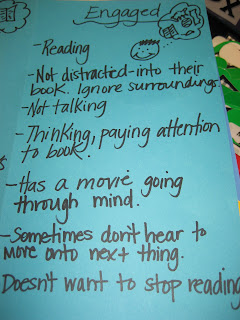 Engaged
-Reading
-Not distracted-into their
book. Ignore surroundings.
-Not talking
-Thinking, paying attention
to book.
-Has a movie going
through mind.
-Sometimes don't hear to
move onto next thing.
Doesn't want to stop reading